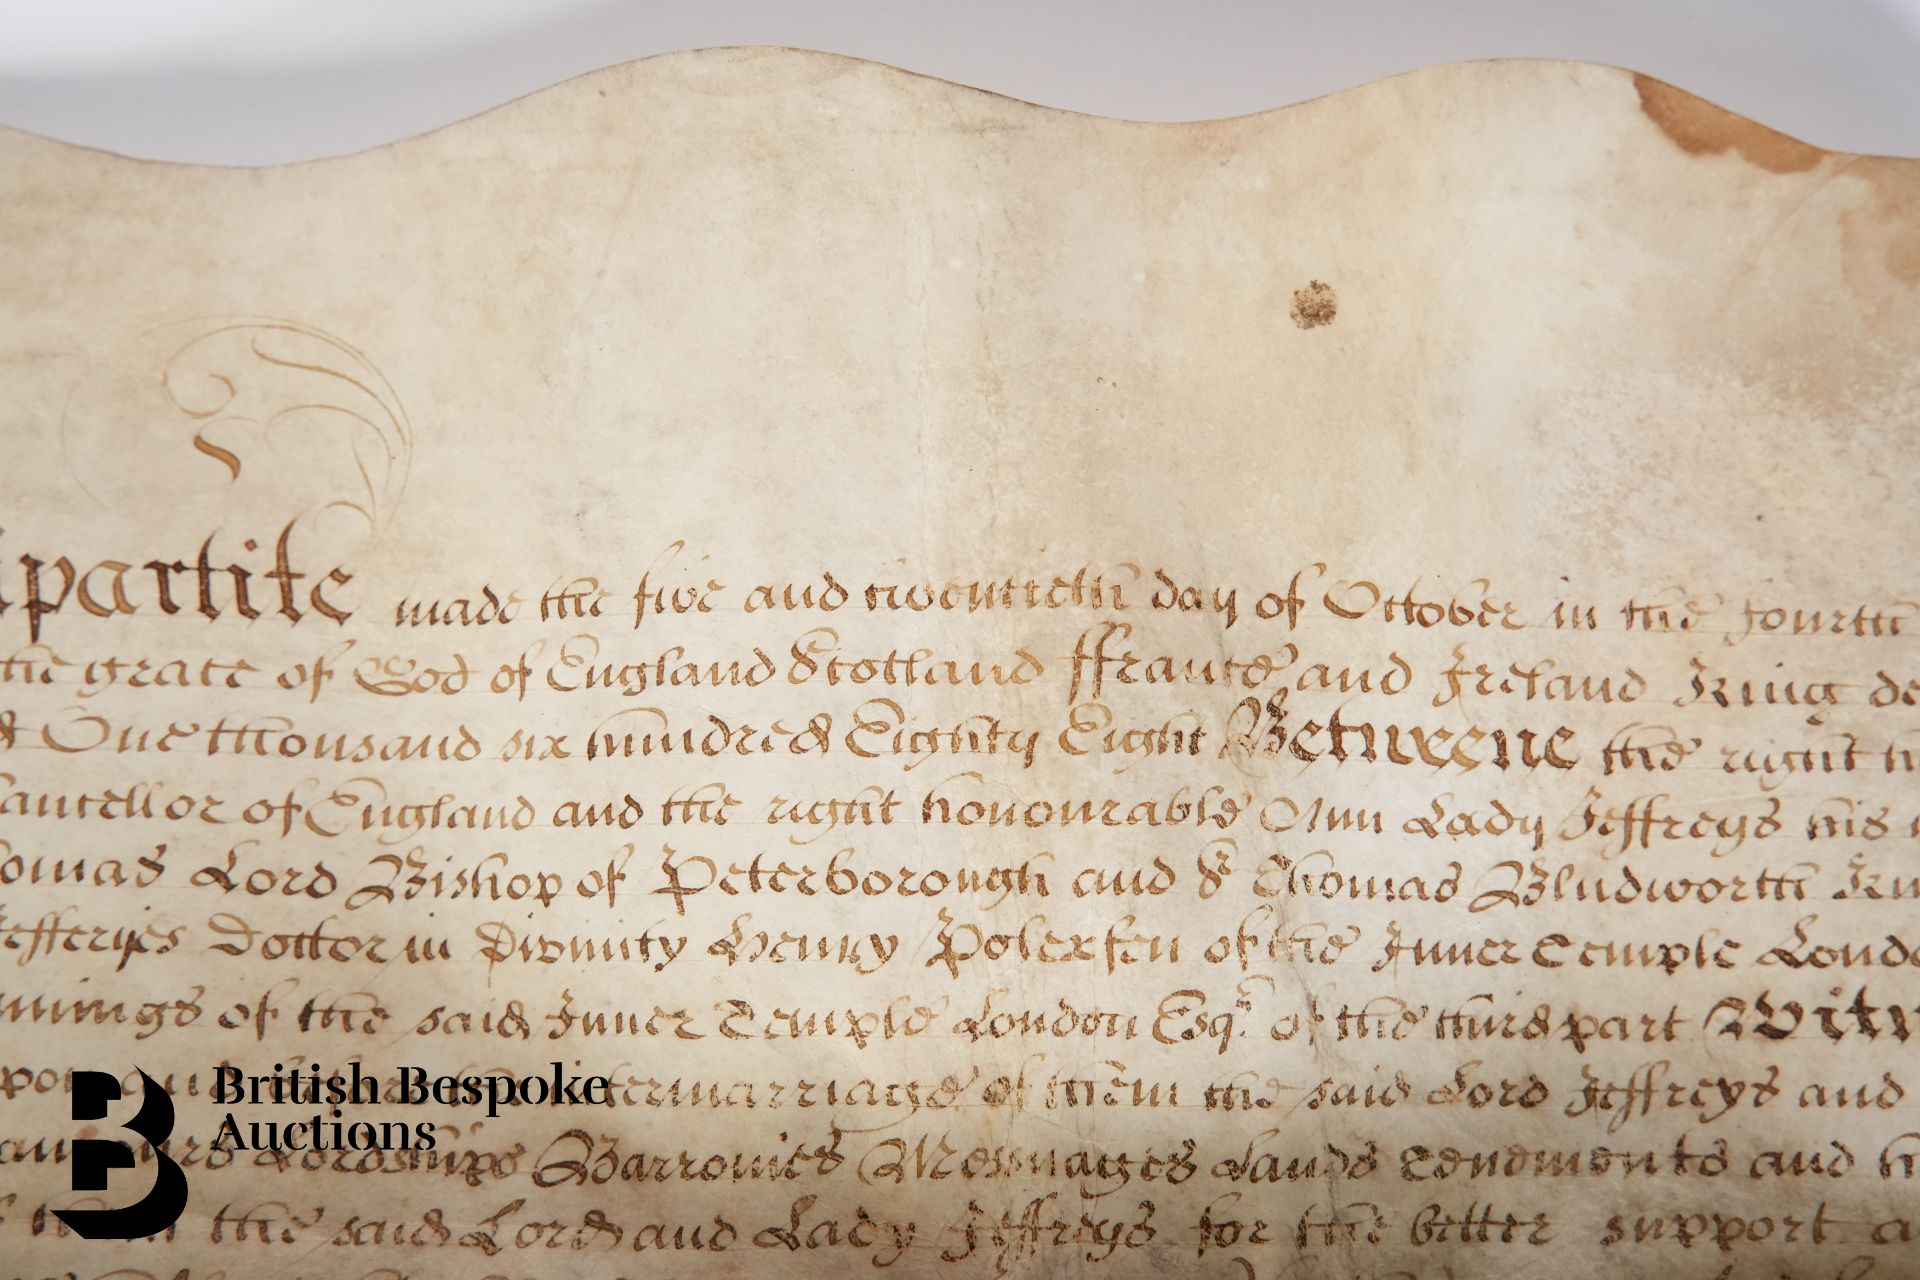 partite made the five and twentieth day of October in the fourth
the grace of God of England Scotland ffrance and Ireland King de
One thousand six hundred Eighty Eight Betweene the right h
ancellor of England and the right honourable Ann Lady Jeffreys his
omas Lord Bishop of Peterborough and Sr Thomas Bludworth Kn
Jefferyes Doctor in Divinity Henry Polexfen of the Inner Temple Londo
of the said Inner Temple London Esqr. of the third part Witn
intermarriage of them the said Lord Jeffreys and
Lordshipps Barronies Messuages Lands Tenements and h
the said Lord and Lady Jeffreys for the better support a
British Bespoke
Auctions